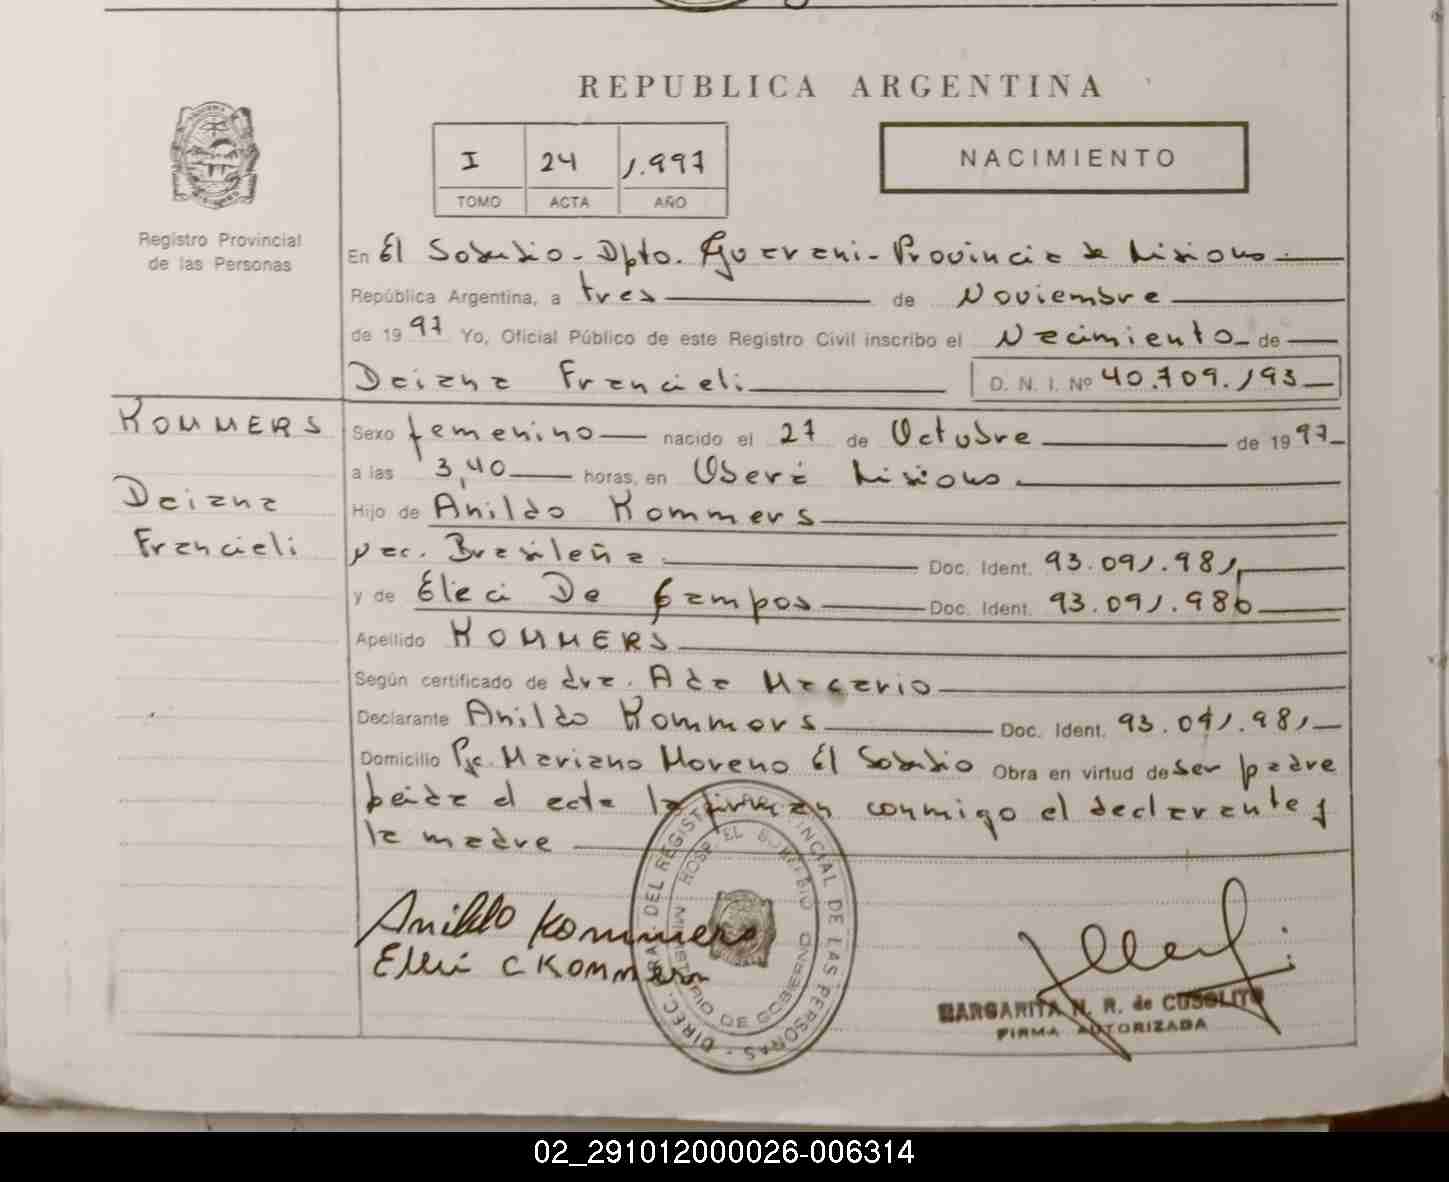 REPUBLICA ARGENTINA
I 24 1.997
TOMO ACTA AÑO
NACIMIENTO
Registro Provincial
de las Personas
En El Soberbio - Dpto. Guarani - Provincia de Misiones
República Argentina, a tres de Noviembre
de 1997 Yo, Oficial Público de este Registro Civil inscribo el Nacimiento de
Daiana Francieli D. N. I. Nº 40.709.193
KOMMERS
Daiana
Francieli
Sexo femenino nacido el 27 de Octubre de 1997
a las 3,40 horas, en Oberá Misiones
Hijo de Anildo Kommers
nac. Brasileña Doc. Ident. 93.091.981
y de Eleci De Campos Doc. Ident. 93.091.986
Apellido KOMMERS
Según certificado de dra. Ada Macario
Declarante Anildo Kommers Doc. Ident. 93.091.981
Domicilio Pje. Mariano Moreno El Soberbio Obra en virtud de ser padre
Leída el acta la firman conmigo el declarante y
la madre
Anildo Kommers
C Kommers
DIREC. GRAL DEL REGISTRO PROVINCIAL DE LAS PERSONAS
HOSP. EL SOBERBIO
MINISTERIO DE GOBIERNO
MARGARITA N. R. de CUSOLITO
FIRMA AUTORIZADA
02_291012000026-006314